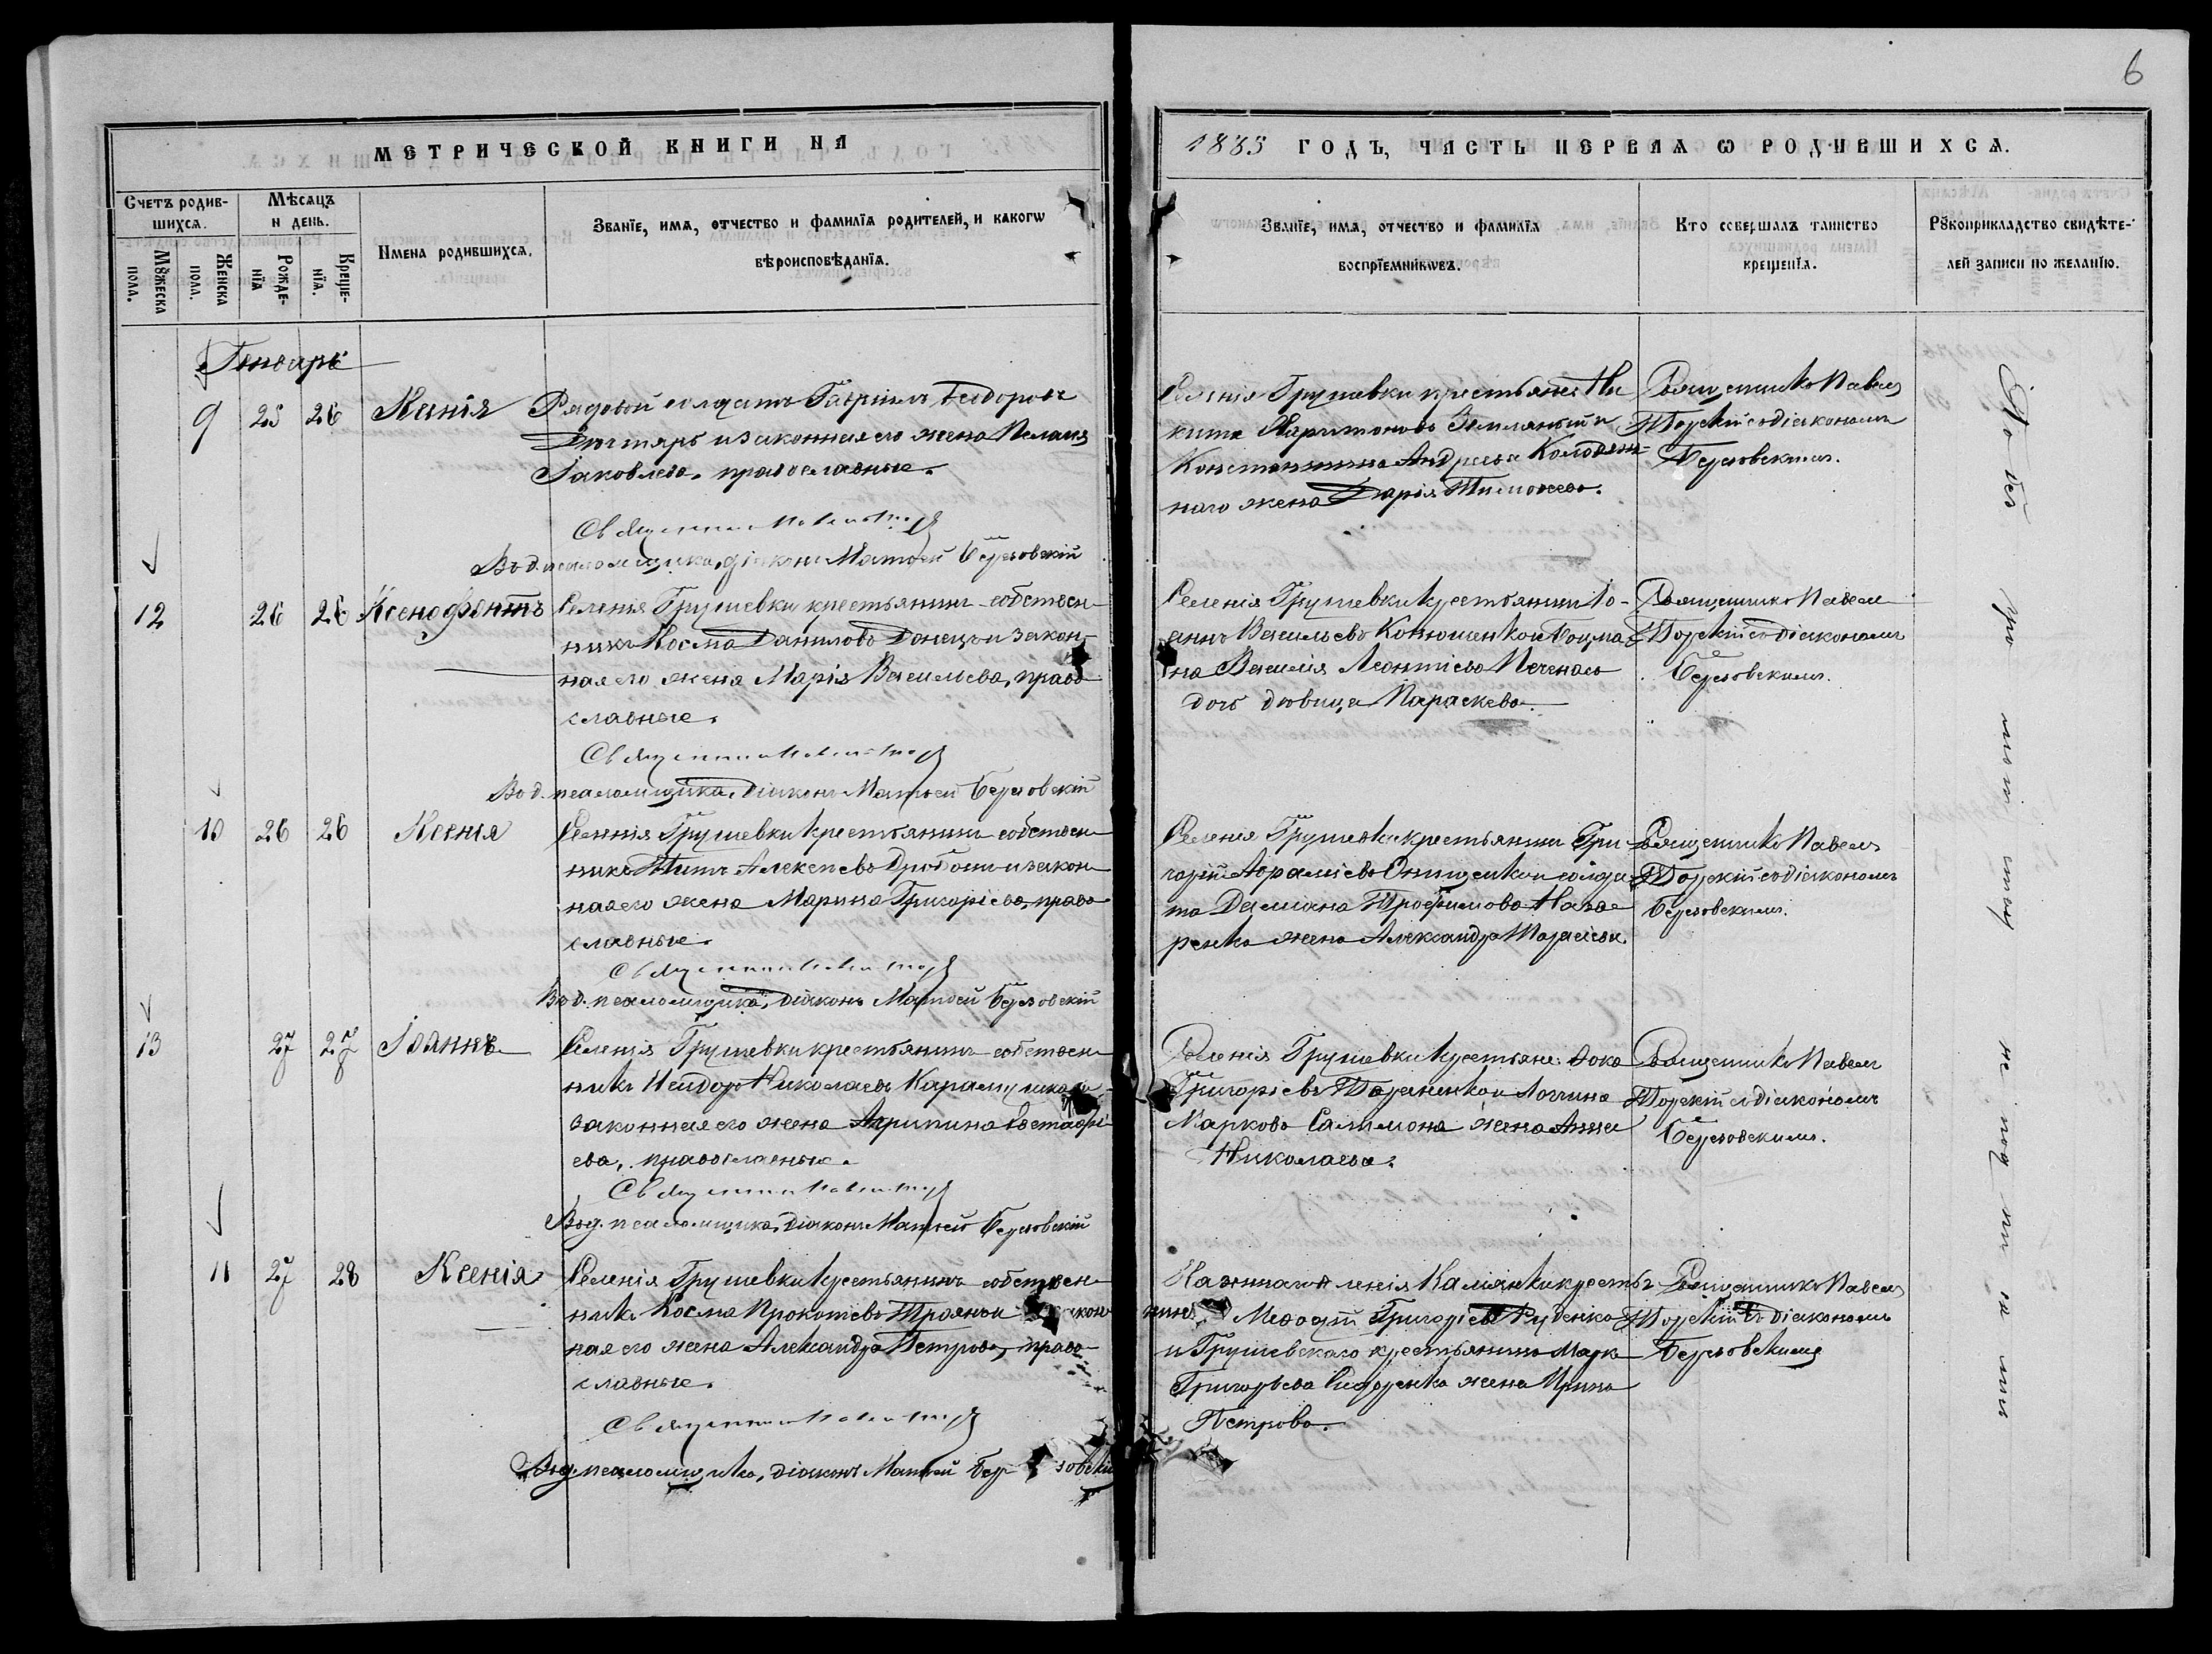 6
МЕТРИЧЕСКОЙ КНИГИ НА
1883 ГОДЪ, ЧАСТЬ ПЕРВАѦ Ѡ РОДИВШИХСѦ.
Счетъ родив-
шихсѧ.
Мѣсѧцъ
и день.
Мꙋжеска
пола.
Женска
пола.
Рожде-
нїѧ
Креще-
нїѧ.
Имена родившихсѧ.
Званїе, имѧ, отчество и фамилїѧ родителей, и какогѡ
вѣроисповѣданїѧ.
Званїе, имѧ, отчество и фамилїѧ
воспрїемникѡвъ.
Кто совершалъ таинство
крещенїѧ.
Рꙋкоприкладство свидѣте-
лей записи по желанїю.
Генварь
9 25 26 Ксенія
Рядовой солдатъ Гавріилъ Ѳеодоровъ
Дѣхтярь и законная его жена Пелагія
Іаковлева, православные.
Священникъ Павелъ
В. д. псаломщика, діаконъ Матѳей Березовскій
Селенія Грушевки крестьяне: Ни-
кита Харитоновъ и
Константина Андреева Колодяж-
наго жена Дарія Тимоѳеева.
Священникъ Павелъ
Торскій съ діакономъ
Березовскимъ.
12 26 26 Ксенофонтъ
Селенія Грушевки крестьянинъ-собствен-
никъ Косма Даниловъ Донецъ и закон-
ная его жена Марія Васильева, право-
славные.
Священникъ Павелъ
В. д. псаломщика, діаконъ Матѳей Березовскій
Селенія Грушевки крестьянинъ Іо-
аннъ Васильевъ Конюшенко и
Василія Леонтіева
дочь дѣвица Параскева.
Священникъ Павелъ
Торскій съ діакономъ
Березовскимъ.
10 26 26 Ксенія
Селенія Грушевки крестьянинъ-собствен-
никъ Титъ Алексѣевъ и закон-
ная его жена Марина Григоріева, право-
славные.
Священникъ Павелъ
В. д. псаломщика, діаконъ Матѳей Березовскій
Селенія Грушевки крестьянинъ Гри-
горій Аврамівъ Онищенко и солда-
та Даміана Трофимова Наза-
ренко жена Александра
Священникъ Павелъ
Торскій съ діакономъ
Березовскимъ.
13 27 27 Іоаннъ
Селенія Грушевки крестьянинъ-собствен-
никъ Исидоръ Николаевъ и
законная его жена Агрипина Евстафі-
ева, православные.
Священникъ Павелъ
В. д. псаломщика, діаконъ Матѳей Березовскій
Селенія Грушевки крестьяне: Ѳока
Григоріевъ и Логгина
Маркова жена Анна
Николаева.
Священникъ Павелъ
Торскій съ діакономъ
Березовскимъ.
11 27 28 Ксенія
Селенія Грушевки крестьянинъ-собствен-
никъ Косма Прокопіевъ Троянъ и закон-
ная его жена Александра Петрова, право-
славные.
Священникъ Павелъ
В. д. псаломщика, діаконъ Матѳей Березовскій
селенія Каміанки кресть-
янинъ Меѳодій Григоріевъ Руденко
и Грушевскаго крестьянина Марка
Григорьева Сидоренка жена Ирина
Петрова.
Священникъ Павелъ
Торскій съ діакономъ
Березовскимъ